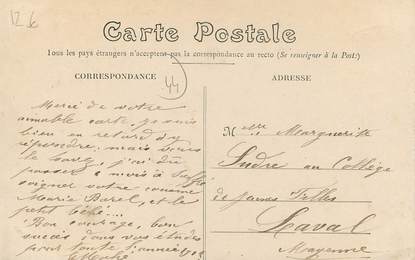 12 €
Carte Postale
Tous les pays étrangers n'acceptent pas la correspondance au recto (Se renseigner à la Poste)
CORRESPONDANCE
44
Merci de votre
aimable carte, je suis
bien en retard d'y
répondre, mais
le j'ai dû
passer 2 mois à
soigner votre cousine
Marie et le
petit bébé...
Bon courage, bon
succès dans vos études
pour toute l'année
ADRESSE
Melle Marguerite
Ludre au Collège
de Jeunes Filles
Laval
Mayenne